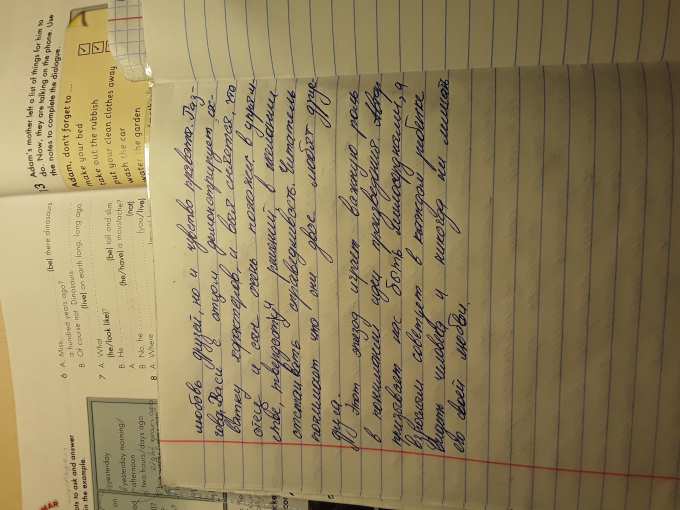 любовь друзей, но и чувство правоты. Раз-
говор Васи с отцом демонстрирует ха-
отец и сын очень похожи: в упрям-
отстаивать справедливость. Читатель
понимает что они двое любят друг
друга.
Этот эпизод играет важную роль
в понимании идеи произведения. Автор
призывает нас быть
взрослым советует в каждом ребёнке
видеть человека и никогда не лишать
его своей любви.
6 A Miss, (be) there dinosaurs
a hundred years ago?
B Of course not. Dinosaurs
(live) on earth long, long ago.
7 A What
(he/look like)?
B He (be) tall and slim.
A (he/have) a moustache?
B No, he (not)
8 A Where (you/live)
13 Adam's mother left a list of things for him to
do. Now, they are talking on the phone. Use
the notes to complete the dialogue.
Adam, don't forget to ...
make your bed
take out the rubbish
put your clean clothes away
wash the car
water the garden
to ask and answer
in the example.
yesterday
yesterday morning/
afternoon
two hours/days ago